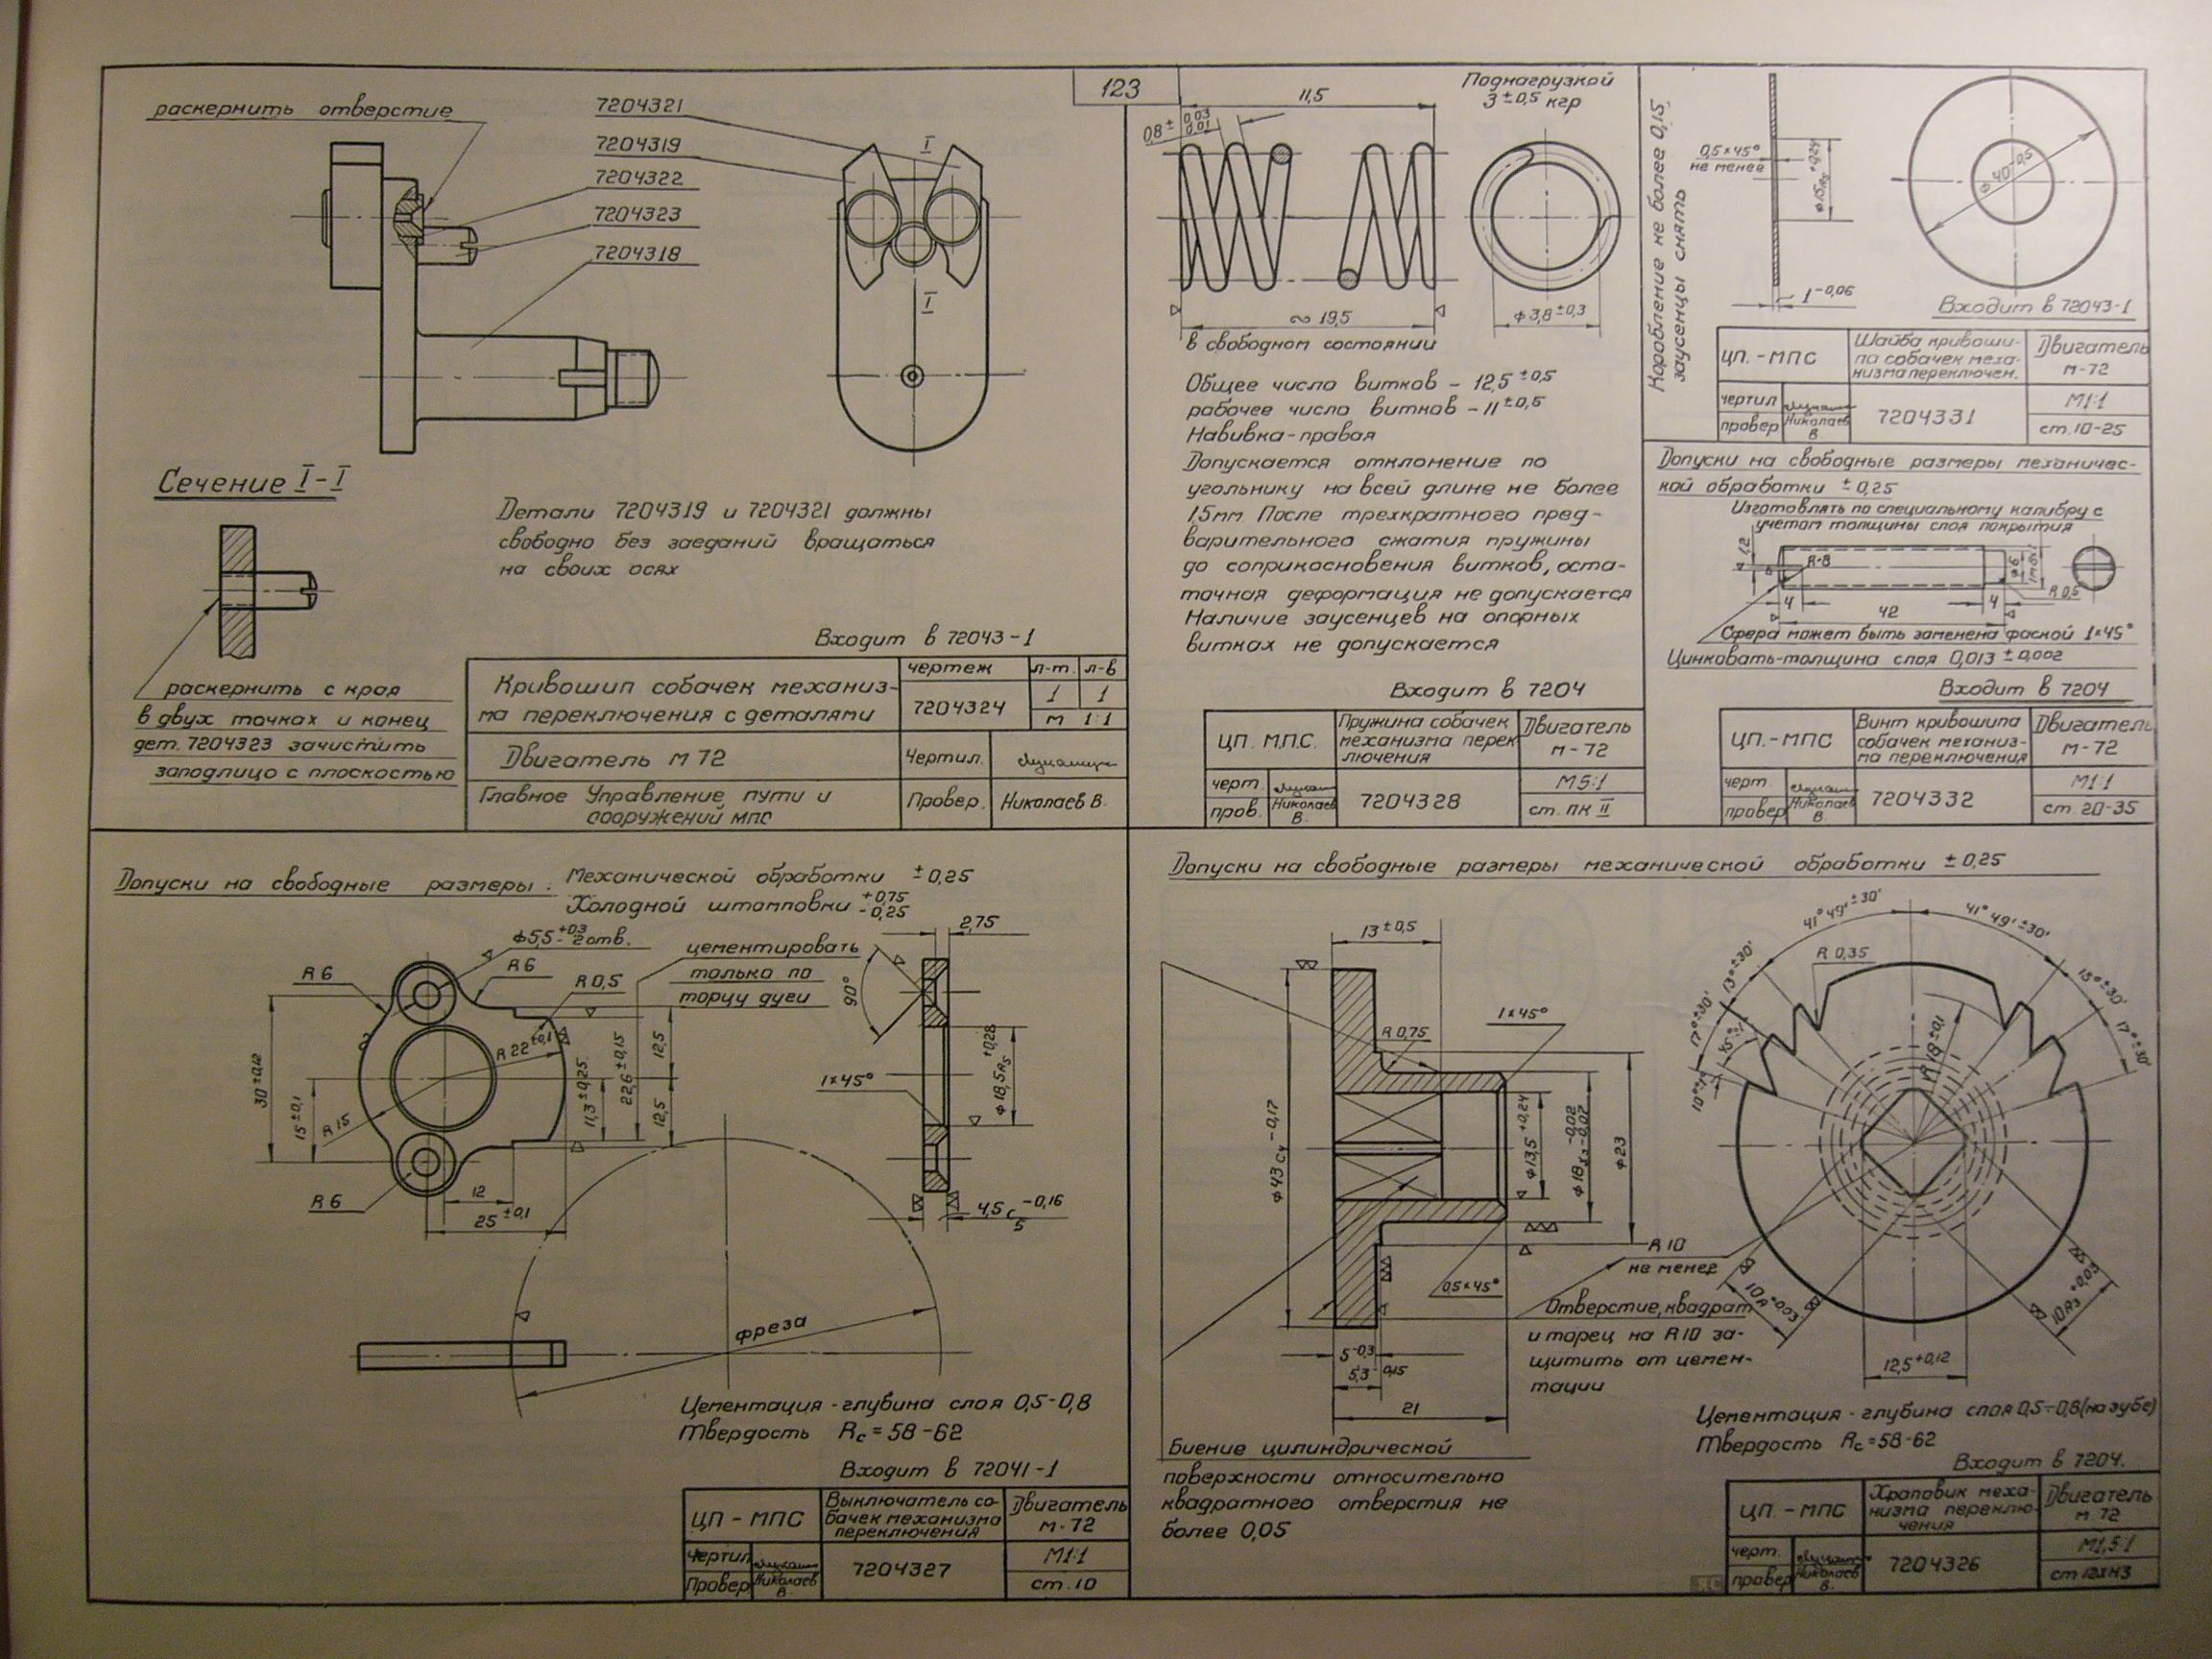 123
раскернить отверстие
7204321
7204319
7204322
7204323
7204318
I
I
Сечение I-I
Детали 7204319 и 7204321 должны
свободно без заеданий вращаться
на своих осях
раскернить с края
в двух точках и конец
дет. 7204323 зачистить
заподлицо с плоскостью
Входит в 72043-1
Кривошип собачек механиз-
ма переключения с деталями
чертеж
л-т.
л-в
7204324
1
1
М 1:1
Двигатель М 72
Чертил.
Главное Управление пути и
сооружений МПС
Провер.
Николаев В.
11,5
Поднагрузкой
3±0,5 кгр
∾ 19,5
ф 3,8±0,3
в свободном состоянии
Общее число витков – 12,5±0,5
рабочее число витков – 11±0,5
Навивка-правая
Допускается отклонение по
угольнику на всей длине не более
1,5мм. После трехкратного пред-
варительного сжатия пружины
до соприкосновения витков, оста-
точная деформация не допускается
Наличие заусенцев на опорных
витках не допускается
Входит в 7204
ЦП. М.П.С.
Пружина собачек
механизма перек
лючения
Двигатель
м-72
черт.
пров.
Николаев
В.
7204328
М5:1
ст. ПК II
Коробление не более 0,15,
заусенцы снять
0,5×45°
не менее
ф 40-0,5
1-0,06
Входит в 72043-1
ЦП.-МПС
Шайба кривоши-
па собачек меха-
низма переключен.
Двигатель
м-72
чертил
провер
Николаев
В.
7204331
М1:1
ст.10-25
Допуски на свободные размеры механичес-
кой обработки ±0,25
Изготовлять по специальному калибру с
учетом толщины слоя покрытия
1,2
R-8
4
42
4
R 0,5
Сфера может быть заменена фаской 1×45°
Цинковать-толщина слоя 0,013±0,002
Входит в 7204
ЦП.-МПС
Винт кривошипа
собачек механиз-
ма переключения
Двигатель
м-72
черт.
провер
Николаев
В.
7204332
М1:1
ст. 20-35
Допуски на свободные размеры:
Механической обработки ±0,25
Холодной штамповки +0,75 -0,25
ф5,5+0,3 2отв.
R 6
R 6
R 0,5
цементировать
только по
торцу дуги
2,75
90°
30±0,12
15±0,1
R 15
R 22±0,1
11,3±0,25
22,6±0,15
12,5
12,5
1×45°
ф 18,5А5+0,28
R 6
12
25±0,1
4,5 С5-0,16
фреза
Цементация - глубина слоя 0,5-0,8
Твердость Rc=58-62
Входит в 72041-1
ЦП - МПС
Выключатель со-
бачек механизма
переключения
Двигатель
м-72
Чертил
Провер
Николаев
В.
7204327
М1:1
ст. 10
Допуски на свободные размеры механической обработки ±0,25
13±0,5
R 0,75
1×45°
ф 43 С4-0,17
ф 13,5+0,24
ф 23
0,5×45°
5-0,3
5,3-0,15
21
R 10
не менее
Отверстие, квадрат
и торец на R10 за-
щитить от цемен-
тации
Биение цилиндрической
поверхности относительно
квадратного отверстия не
более 0,05
41°49'±30'
41°49'±30'
R 0,35
13°±30'
15°±30'
17°±30'
17°±30'
R 18±0,1
10А3+0,03
12,5+0,12
Цементация - глубина слоя 0,5-0,8(на зубе)
Твердость Rc=58-62
Входит в 7204.
ЦП. - МПС
Храповик меха-
низма переклю-
чения
Двигатель
м 72
черт.
провер
Николаев
В.
7204326
М1,5:1
ст 12ХН3